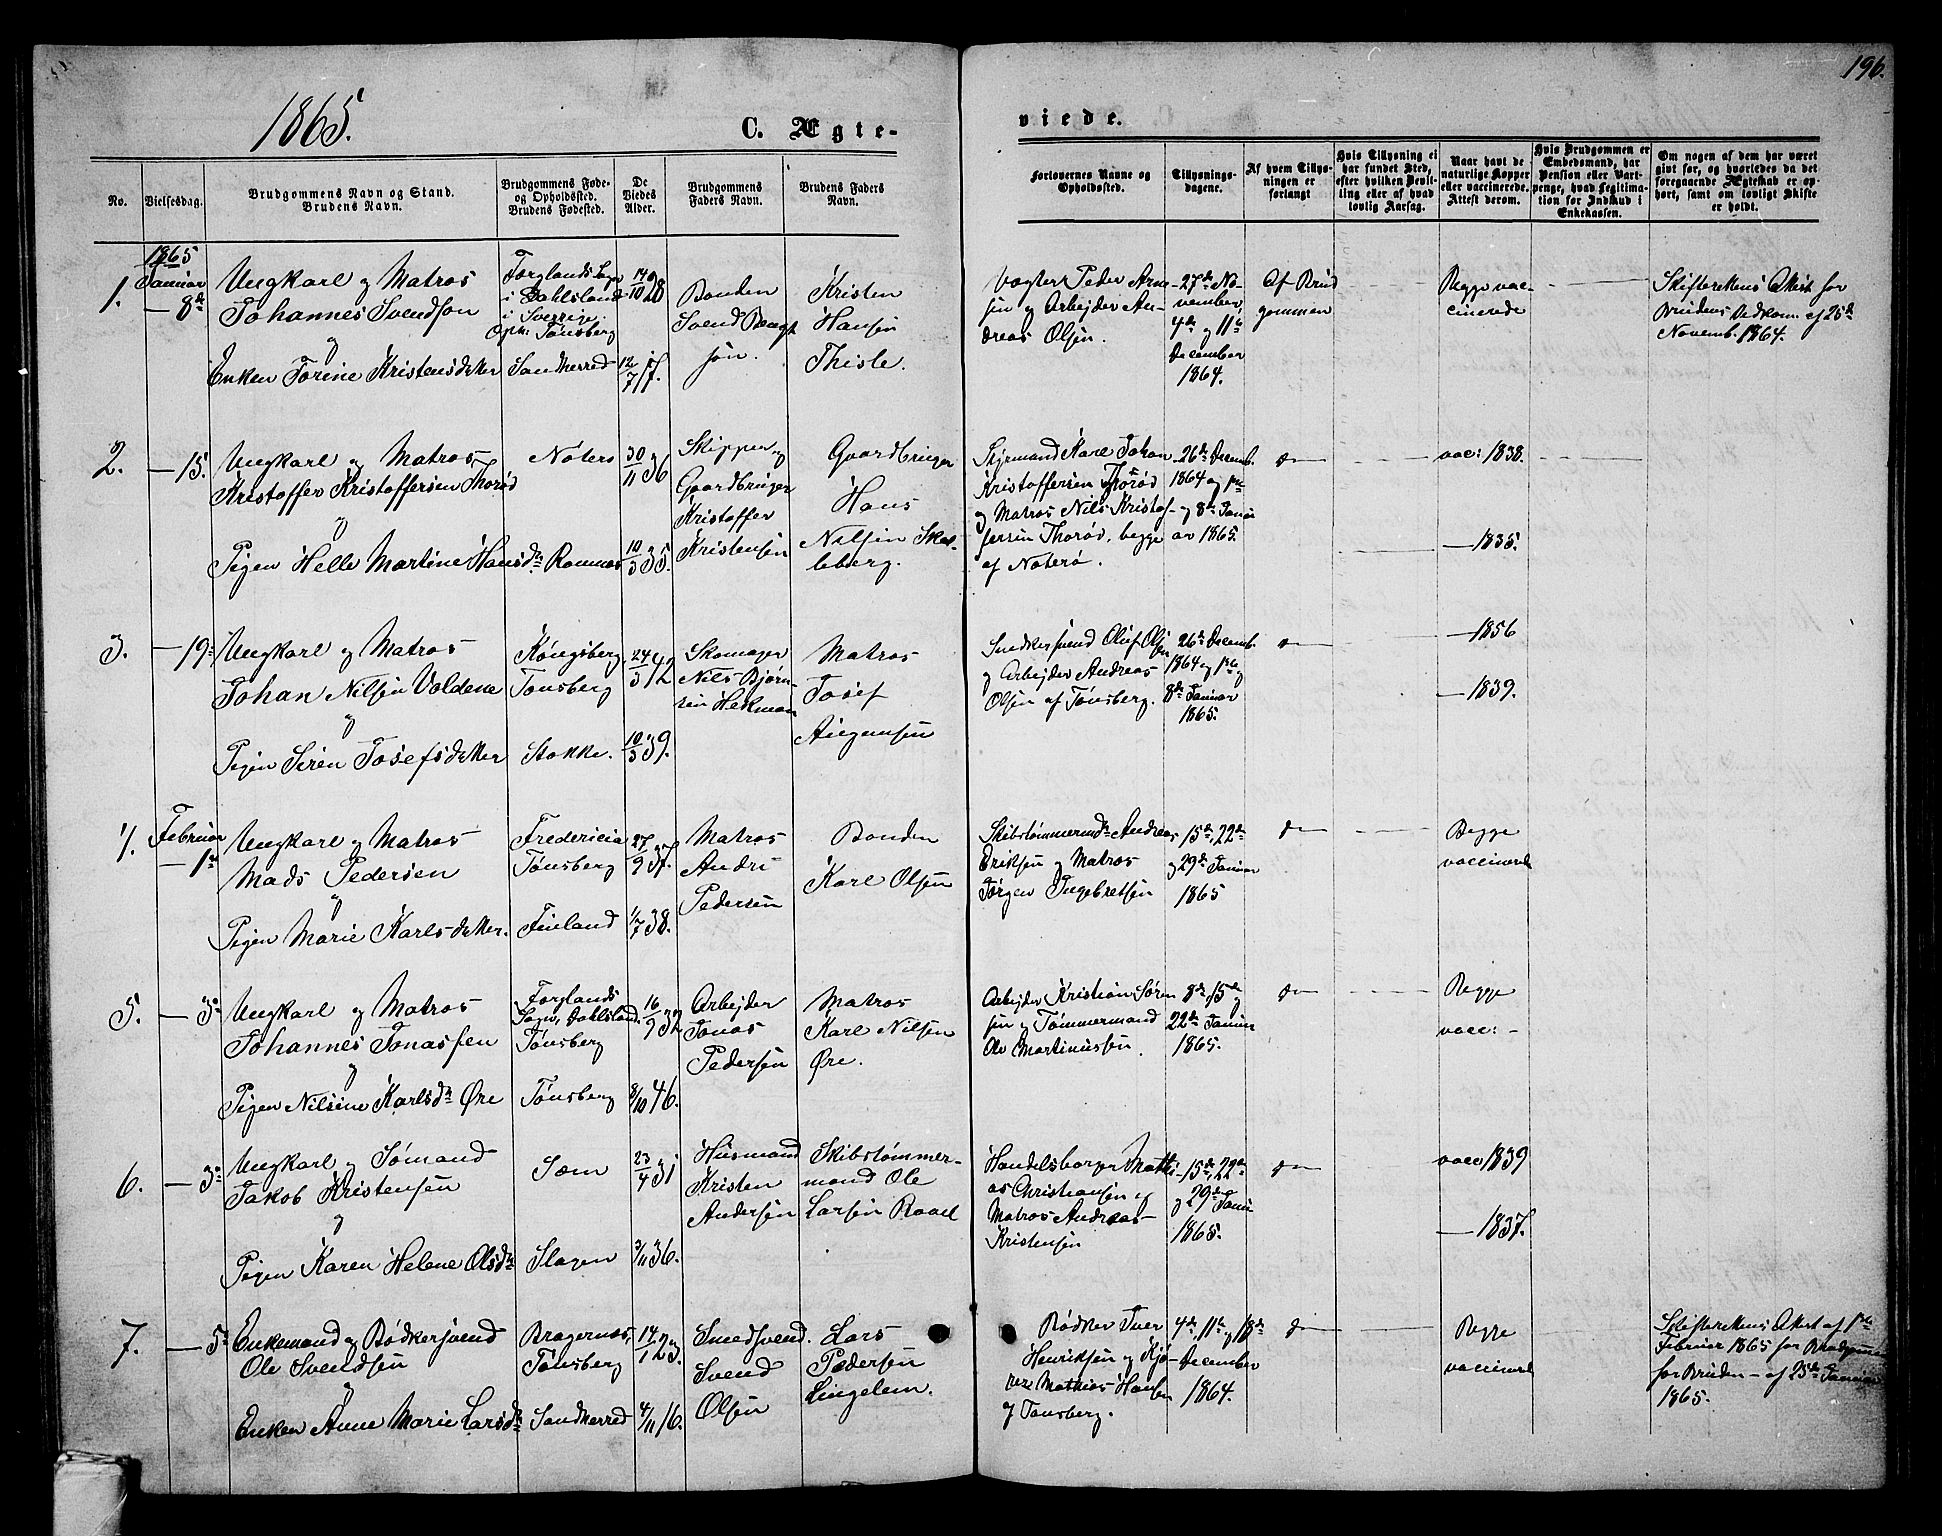 196.
1865.
C. Ægte-
viede.
No.
Vielsesdag.
Brudgommens Navn og Stand.
Brudens Navn.
Brudgommens Føde-
og Opholdssted.
Brudens Fødested.
De
Viedes
Alder.
Brudgommens
Faders Navn.
Brudens Faders
Navn.
Forlovernes Navne og
Opholdssted.
Tillysnings-
dagene.
Af hvem Tillys-
ningen er
forlangt
Hvis Tillysning ei
har fundet Sted,
efter hvilken Bevil-
ling eller af hvad
lovlig Aarsag.
Naar havt de
naturlige Kopper
eller vaccinerede.
Attest derom.
Hvis Brudgommen er
Embedsmand, har
Pension eller Vart-
penge, hvad Legitima-
tion for Indskud i
Enkekassen.
Om nogen af dem har været
gift før, og hvorledes da det
foregaaende Ægteskab er op-
hørt, samt om lovligt Skifte
er holdt.
1.
1865
Januar
8de
Ungkarl og Matros
Johannes Svendson
og
Enken Torine Kristensdatter
i Dahlsland
i Sverrige.
Oph: Tønsberg
Sandherred
14/10 28
12/7 57.
Bonden
Svend
søn.
Kristen
Hansen
Thisle.
Vogter Peder Arne-
sen og Arbejder An-
dreas Olsen.
27de No-
vember,
4de og 11te
December
1864.
Af Brud
gommen
Begge vac-
cinerede
Skifterettens Attest for
Brudens Vedkom. af 25de
Novemb. 1864.
2.
— 15.
Ungkarl og Matros
Kristoffer Kristoffersen Thorød
og
Pigen Helle Martine Hansdr
Nøterø
Ramnæs
30/11 36
10/3 35.
Skipper og
Gaardbruger
Kristoffer
Kristensen
Gaardbruger
Hans
Nilsen
leberg.
Styrmand Karl Johan
Kristoffersen Thorød
og Matros Nils Kristof-
fersen Thorød, begge
af Nøterø.
26de Decemb.
1864 og 1ste
og 8de Janu
ar 1865.
do
vac: 1838.
— 1835.
3.
— 19.
Ungkarl og Matros
Johan Nilsen Voldene
og
Pigen Seren Josefsdatter
Kongsberg.
Tønsberg
Stokke.
24/3 42
10/3 39.
Skomager
Nils Bjørn-
sen Hekman
Matros
Josef
Snedkersvend Oluf Olsen
og Arbejder Andreas
Olsen af Tønsberg.
26de Decemb.
1864 og 1ste og
8de Januar
1865.
do
— 1856
— 1839.
4.
Februar
— 1ste
Ungkarl og Matros
Mads Pedersen
og
Pigen Marie Karlsdatter.
Fredericia
Tønsberg
Finland
27/9 37.
1/7 38.
Matros
Andr.
Pedersen
Bonden
Karl Olsen
Skibstømmermd. Andreas
Eriksen og Matros
Jørgen Ingebretsen
15de, 22de
og 29de Januar
1865
do
Begge
vaccinerede
5.
— 3.
Ungkarl og Matros
Johannes Jonassen
og
Pigen Nilsine Karlsdr Øre
Sogn, Dahlsland.
Tønsberg
Tønsberg
16/9 32
8/10 46.
Arbejder
Jonas
Pedersen
Matros
Karl Nilsen
Øre.
Arbejder Kristian Søren
sen og Tømmermand
Ole Martinussen.
8de, 15de og
22de Januar
1865.
do
Begge
vacc: —
6.
— 3.
Ungkarl og Sømand
Jakob Kristensen
og
Pigen Karen Helene Olsdr
Sæm
Slagen
23/4 31
3/11 36.
Husmand
Kristen
Andersen
Skibstømmer-
mand Ole
Larsen Raael
Handelsborger Matti-
as Christiansen og
Matros Andreas
Kristensen
15de, 22de
og 29de Janu
1865.
do
vacc: 1839
— 1837.
7.
— 5.
Enkemand og Bødkersvend
Ole Svendsen
og
Enken Anne Marie Larsdr
Bragernæs,
Tønsberg
Sandherred
4/11
Smedsvend.
Svend
Olsen
Lars
Pedersen
Lingelem.
Bødker Iver
Henriksen og Kjø-
rer Mathias Hansen
af Tønsberg.
4de, 11te og 18de
December
1864.
do
Begge
vaccinerede
Skifterettens Attest af 1ste
Februar 1865 for Brudgommen
for Bruden — af 25de Januar
1865.